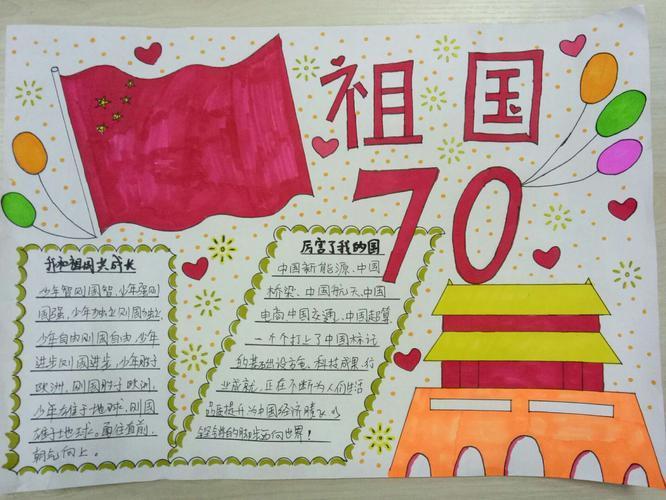 祖国
70
我和祖国共成长
少年智则国智，少年强则
国强，少年独立则国独立
少年自由则国自由，少年
进步则国进步，少年胜于
欧洲，则国胜于欧洲，
少年雄于地球，则国
雄于地球。勇往直前，
朝气向上。
厉害了我的国
中国新能源、中国
桥梁、中国航天、中国
电商中国交通、中国超算
一个个打上了中国标记
的基础设施、科技成果、行
业成就，正在不断为人们生活
提升 为中国经济腾飞
的脚步 向世界！